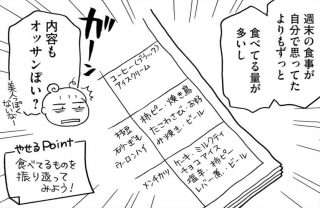 週末の食事が
自分で思ってた
よりもずっと
食べてる量が
多いし
ガーン
内容も
オッサンぽい?
美人っぽく
ないな
コーヒー(ブラック)
アイスクリーム
柿ピー 焼き鳥
たこわさび
ビール
枝豆
砂ぎも
ウーロンハイ
ケーキ ミルクティ
チョコアイス
塩辛 柿ピー
レバー煮 ビール
メンチカツ
やせるPoint
食べてるものを
振り返って
みよう!